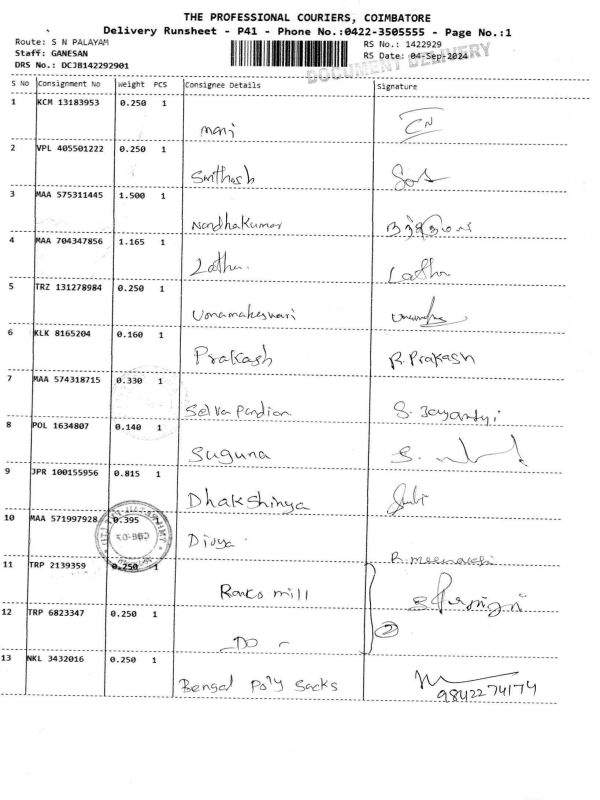 THE PROFESSIONAL COURIERS, COIMBATORE
Delivery Runsheet - P41 - Phone No.:0422-3505555 - Page No.:1
Route: S N PALAYAM
RS No.: 1422929
Staff: GANESAN
RS Date: 04-Sep-2024
DRS No.: DCJB142292901
DOCUMENT DELIVERY
S No Consignment No Weight PCS Consignee Details Signature
1 KCM 13183953 0.250 1
mani
2 VPL 405501222 0.250 1
Santhosh
3 MAA 575311445 1.500 1
Nandhakumar
4 MAA 704347856 1.165 1
Latha Latha
5 TRZ 131278984 0.250 1
Umamakeswari
6 KLK 8165204 0.160 1
Prakash R. Prakash
7 MAA 574318715 0.330 1
Selva Pandian S. Jayanthi
8 POL 1634807 0.140 1
Suguna S.
9 JPR 100155956 0.815 1
Dhakshinya
10 MAA 571997928 0.395 1
Divya R. meenakshi
11 TRP 2139359 0.250 1
Ranko mill
12 TRP 6823347 0.250 1
2
DO
13 NKL 3432016 0.250 1
Bengal Poly Sacks
9842274174